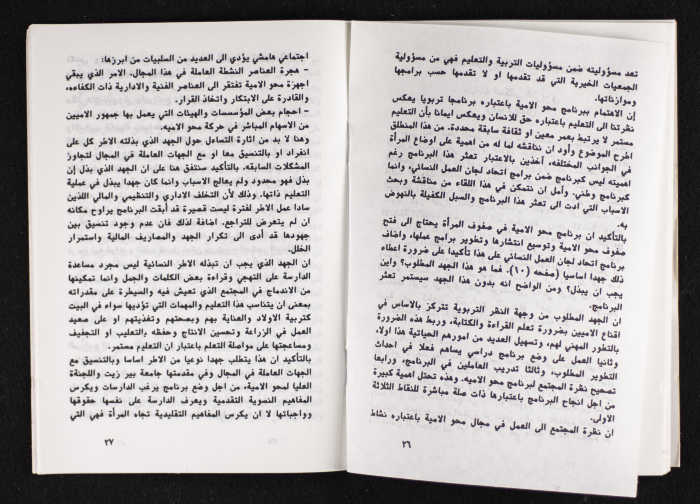 تعد مسؤوليته ضمن مسؤوليات التربية والتعليم فهي من مسؤولية
الجمعيات الخيرية التي قد تقدمها او لا تقدمها حسب برامجها
وموازناتها.
إن الاهتمام ببرنامج محو الامية باعتباره برنامجا تربويا يعكس
نظرتنا الى التعليم باعتباره حق للانسان ويعكس ايمانا بأن التعليم
مستمر لا يرتبط بعمر معين او ثقافة سابقة محددة. من هذا المنطلق
اطرح الموضوع وأود ان نناقشه لما له من اهمية على اوضاع المرأة
في الجوانب المختلفه، آخذين بالاعتبار تعثر هذا البرنامج رغم
اهميته ليس كبرنامج ضمن برامج اتحاد لجان العمل النسائي، وانما
كبرنامج وطني. وآمل ان نتمكن في هذا اللقاء من مناقشة وبحث
الاسباب التي ادت الى تعثر هذا البرنامج والسبل الكفيلة بالنهوض
به.
بالتأكيد ان برنامج محو الامية في صفوف المرأة يحتاج الى فتح
صفوف محو الامية وتوسيع انتشارها وتطوير برامج عملها، واضاف
برنامج اتحاد لجان العمل النسائي على هذا تأكيدا على ضرورة اعطاء
ذلك جهدا اساسيا (صفحه ١٠). فما هو هذا الجهد المطلوب؟ واين
يجب ان يبذل؟ ومن الواضح انه بدون هذا الجهد سيستمر تعثر
البرنامج.
ان الجهد المطلوب من وجهة النظر التربوية تتركز بالاساس في
اقناع الاميين بضرورة تعلم القراءة والكتابة، وربط هذه الضرورة
بالتطور المهني لهم، وتسهيل العديد من امورهم الحياتية هذا اولا،
وثانيا العمل على وضع برنامج دراسي يساهم فعلا في احداث
التطوير المطلوب، وثالثا تدريب العاملين في البرنامج، ورابعا
تصحيح نظرة المجتمع لبرنامج محو الاميه. وهذه تحتل اهمية كبيرة
من اجل انجاح البرنامج باعتبارها ذات صلة مباشرة للنقاط الثلاثة
الاولى.
ان نظرة المجتمع الى العمل في مجال محو الامية باعتباره نشاط
٢٦
اجتماعي هامشي يؤدي الى العديد من السلبيات من ابرزها:
- هجرة العناصر النشطة العاملة في هذا المجال. الامر الذي يبقي
اجهزة محو الامية تفتقر الى العناصر الفنية والادارية ذات الكفاءه،
والقادرة على الابتكار واتخاذ القرار.
- احجام بعض المؤسسات والهيئات التي يعمل بها جمهور الاميين
من الاسهام المباشر في حركة محو الاميه.
وهنا لا بد من اثارة التساءل حول الجهد الذي بذلته الاطر كل على
انفراد او بالتنسيق معا او مع الجهات العاملة في المجال لتجاوز
المشكلات السابقه. بالتأكيد سنتفق هنا على ان الجهد الذي بذل إن
بذل فهو محدود ولم يعالج الاسباب وانما كان جهدا يبذل في عملية
التعليم ذاتها. وذلك لأن التخلف الاداري والتنظيمي والمالي اللذين
سادا عمل الاطر لفترة ليست قصيرة قد أبقت البرنامج يراوح مكانه
ان لم يتعرض للتراجع. اضافة لذلك فان عدم وجود تنسيق بين
جهودها قد أدى الى تكرار الجهد والمصاريف المالية واستمرار
الخلل.
ان الجهد الذي يجب ان تبذله الاطر النسائية ليس مجرد مساعدة
الدارسة على التهجي وقراءة بعض الكلمات والجمل وانما تمكينها
من الاندماج في المجتمع الذي تعيش فيه والسيطرة على مقدراته
بمعنى ان يتناسب هذا التعليم والمهمات التي تؤديها سواء في البيت
كتربية الاولاد والعناية بهم وبصحتهم وتغذيتهم او على صعيد
العمل في الزراعة وتحسين الانتاج وحفظه بالتعليب او التجفيف
ومساعجتها على مواصلة التعلم باعتبار ان التعليم مستمر.
بالتأكيد ان هذا يتطلب جهدا نوعيا من الاطر اساسا وبالتنسيق مع
الجهات العاملة في المجال وفي مقدمتها جامعة بير زيت واللجنة
العليا لمحو الامية، من اجل وضع برنامج يرغب الدارسات ويكرس
المفاهيم النسوية التقدمية ويعرف الدارسة على نفسها حقوقها
وواجباتها لا ان يكرس المفاهيم التقليدية تجاه المرأة فهي التي
٢٧